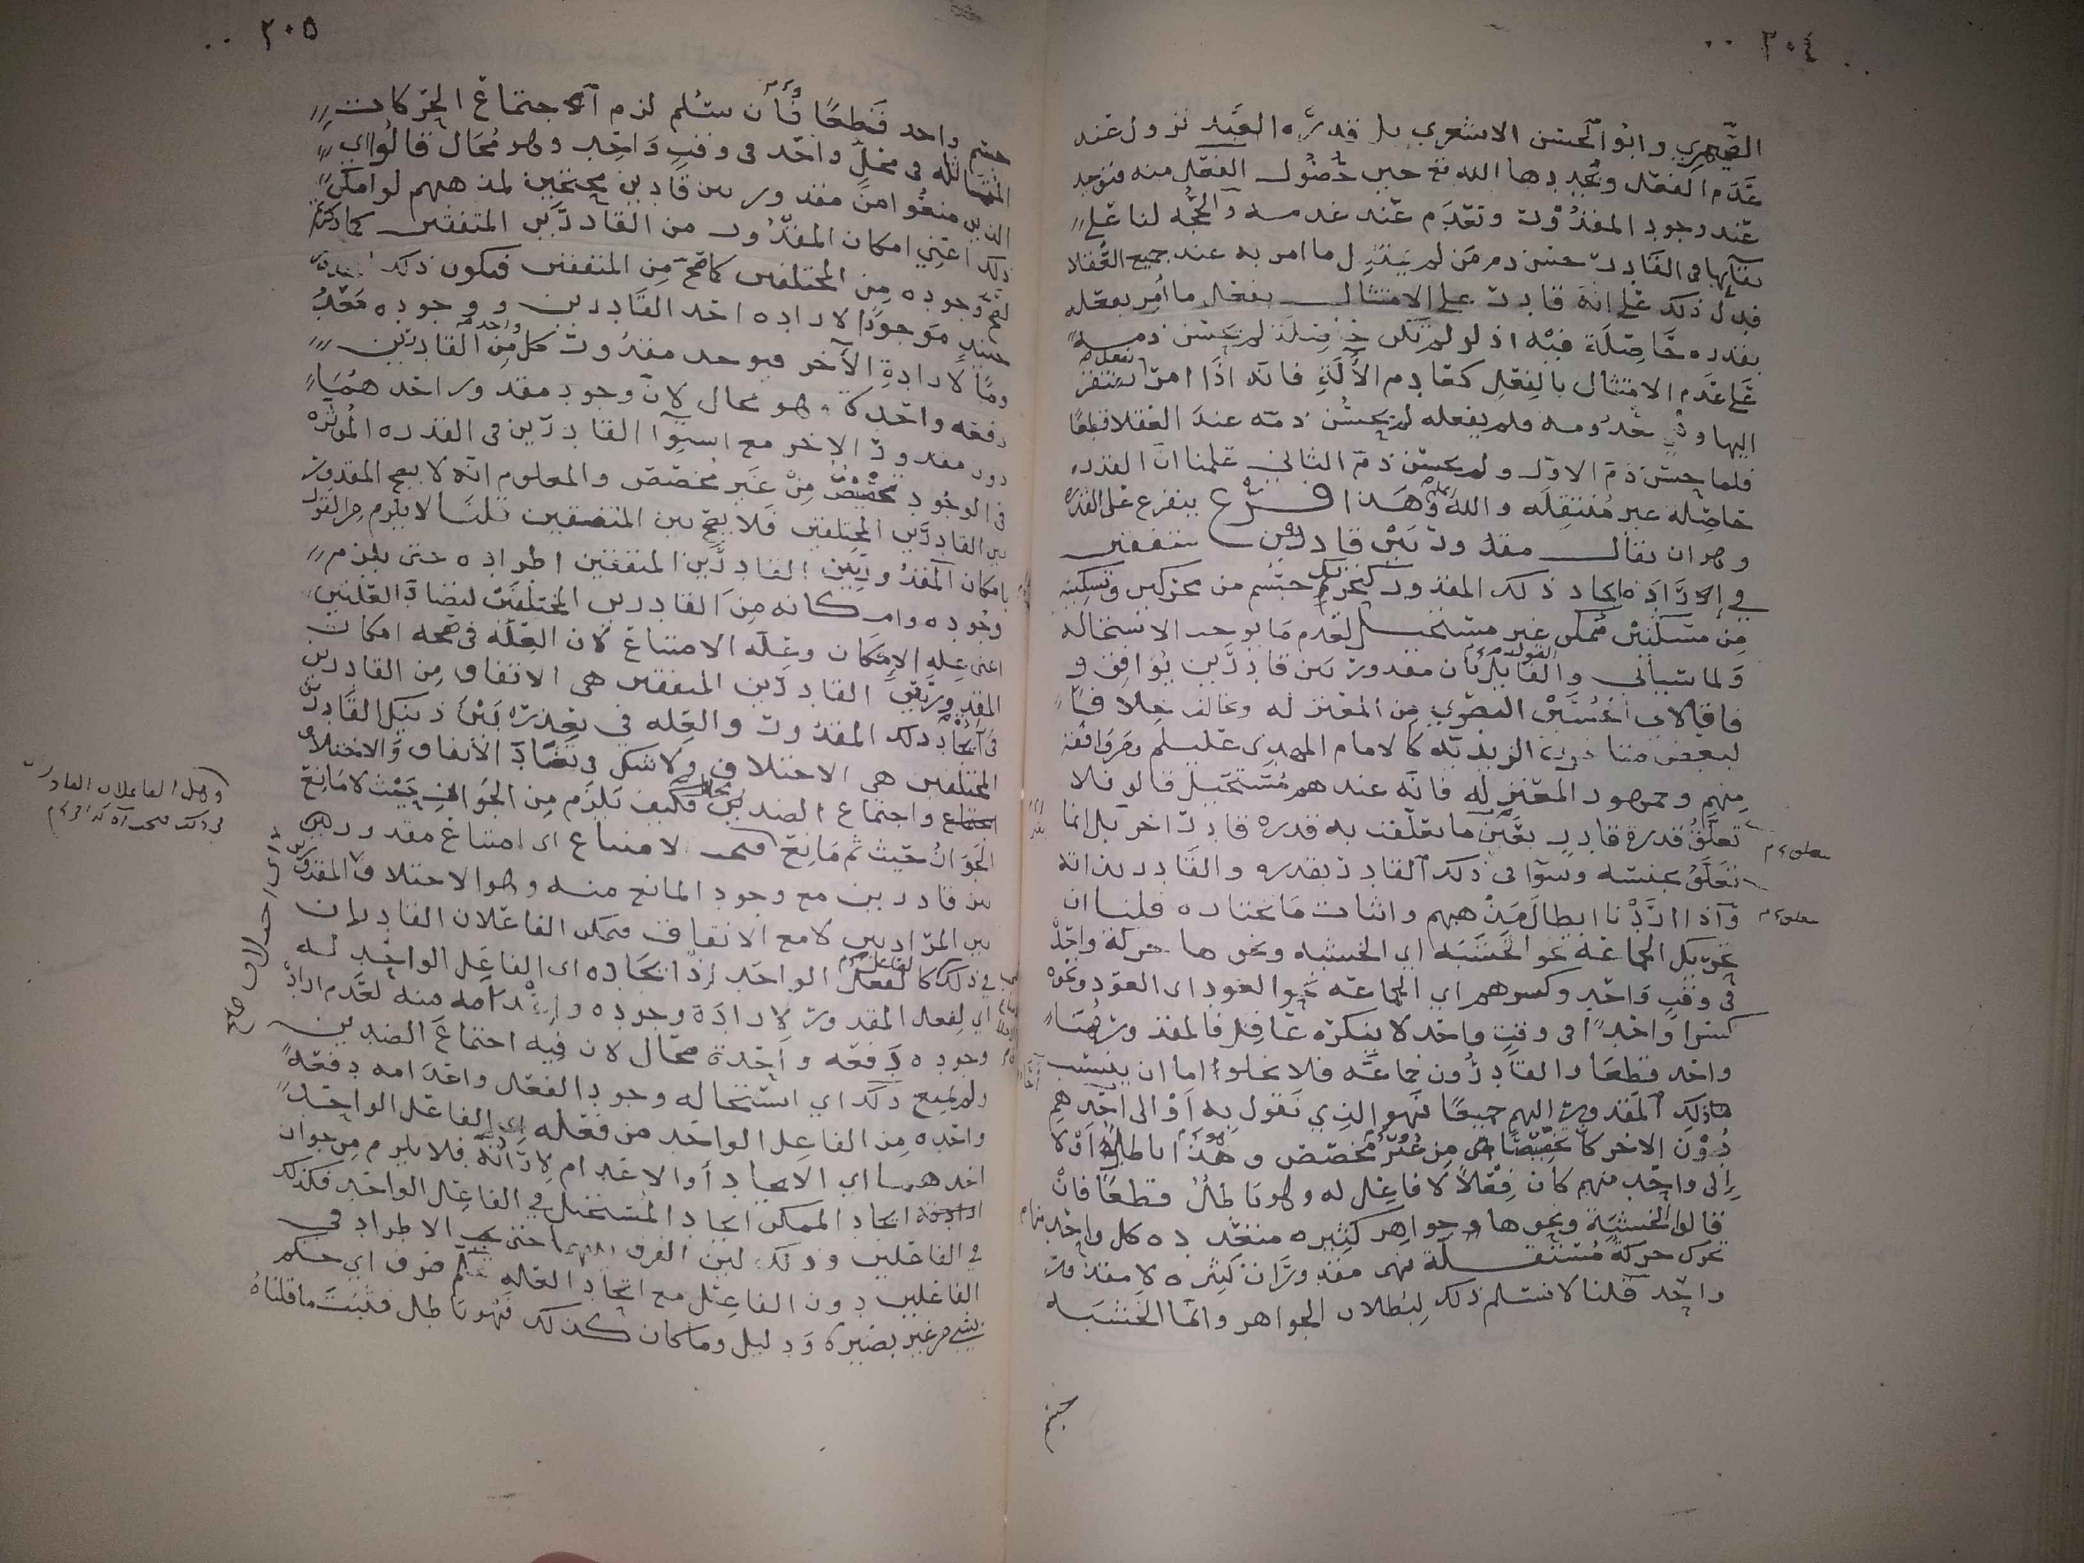 ٣٠٤
الصيمري وابو الحسن الاشعري بل قدرة العبد تزول عند
عدم الفعل ويجددها الله تع حين حصول الفعل منه فتوجد
عند وجود المقدور وتعدم عند عدمه والحجه لنا على
بقائها في القادر حسن ذم من لم يمتثل ما امر به عند جميع العقلا
فدل ذلك على انه قادر على الامتثال بفعل ما أمر بفعله
بقدره حاصلة فيه اذ لو لم تكن حاصلة لم يحسن ذمه
على عدم الامتثال بالفعل كعادم الآلة فانه اذا امر
اليها ولم يفعله لم يحسن ذمه عند العقلا قطعًا
فلما حسن ذم الاول ولم يحسن ذم الثاني علمنا ان القدره
حاصله غير منتفله والله اعلم وهذا فرع يتفرع على القدرة
وهو ان يقال مقدور بين قادرين متفقين
في إرادة ايجاد ذلك المقدور كتحريك جسم من محركين وتسكينه
من مسكنين ممكن غير مستحيل لعدم ما يوجب الاستحاله
ولما سيأتي والقول بان مقدور بين قادرين يوافق
لابي الحسين البصري من المعتزله وخالف خلافًا
لبعض متاخري الزيديه كالامام المهدي عليلم ومن وافقه
منهم وجمهور المعتزله فانه عندهم مستحيل قالو فلا
تعلق قدرة قادر بعين ما تعلقت به قدره قادر اخر بل انما
تعلق بجنسه وسوآ في ذلك القادر بقدره والقادر بذاته
وآذا اردنا ابطال مذهبهم واثبات ما نختاره قلنا ان
تحريك الجماعه نحو الخشبه اي الخشبه ونحوها حركة واحدة
في وقت واحد وكسرهم اي الجماعه نحو العود اي العود ونحوه
كسرًا واحدًا في وقت واحد لا ينكره عاقل فالمقدور هنا
واحد قطعًا والقادرون جماعه فلا يخلوا اما ان ينسب
ذلك المقدور اليهم جميعًا فهو الذي نقول به أو الى احدهم
دون الاخر كان تخصيصًا من غير مخصص وهذا باطل أو لا
إلى واحد منهم كان فعلاً لا فاعل له وهو باطل قطعًا فان
قالوا الخشبة ونحوها جواهر كثيره متعدده كل واحد منهم
تحرك حركة مستقله فهي مقدورات كثيره لا مقدور
واحد قلنا لا نسلم ذلك لبطلان الجواهر وانما الخشبه
جسم
٣٠٥
جسم واحد قطعًا فأن سلم لزم اجتماع الحركات
المتماثله في محل واحد في وقت واحد وهو محال قالوا اي
الذين منعوا من مقدور بين قادرين محتجين لمذهبهم لو امكن
ذلك اعني امكان المقدور من القادرين المتفقين كما ذكرتم
لصح وجوده من المختلفين كما صح من المتفقين فيكون ذلك
حينئذ موجودًا لاراده احد القادرين ووجوده معدو
ومًا لارادة الآخر فيوجد مقدور كل واحد من القادرين
دفعه واحدة وهو محال لان وجود مقدور احدهما
دون مقدور الاخر مع استوآ القادرين في القدره المؤثره
في الوجود تخصيص من غير مخصص والمعلوم انه لا يصح المقدور
بين القادرين المختلفين فلا يصح بين المتفقين قلنا لا يلزم من القول
بامكان المقدور بين القادرين المتفقين اطراده حتى يلزم
وجوده وامكانه من القادرين المختلفين لتضاد العلتين
اعني علة الإمكان وعلة الامتناع لان العلة في صحه امكان
المقدور بين القادرين المتفقين هي الاتفاق من القادرين
في ايجاد ذلك المقدور والعله في تعذره بين ذينك القادرين
المختلفين هي الاختلاف ولا شك في تضاد الاتفاق والاختلاف
واجتماع الضدين محال فكيف يلزم من الجواز حيث لا مانع
الجواز حيث ثم مانع الامتناع اي امتناع مقدور
بين قادرين مع وجود المانع منه وهو الاختلاف
بين المرادين لا مع الاتفاق فيمكن الفاعلان القادران
في ذلك كالفاعل الواحد اذا ايجاده اي الفاعل الواحد له
اي لفعل المقدور لارادة وجوده وامه منه لعدم ارادة
وجوده دفعه واحدة محال لان فيه اجتماع الضدين
ولم يمنع ذلك اي استحاله وجود الفعل واعدامه دفعةً
واحده من الفاعل الواحد من فعله اي الفاعل الواحد
احدهما اي الايجاد أو الاعدام لارادته فلا يلزم من جواز
ايجاد الممكن ايجاد المستحيل في الفاعل الواحد فكذلك
في الفاعلين حتى يجب الاطراد في
الفاعلين دون الفاعل مع اتحاد العله تحكم صرف اي حكم
بشي من غير بصيرة ودليل وما كان كذلك فهو باطل فثبت ما قلناه